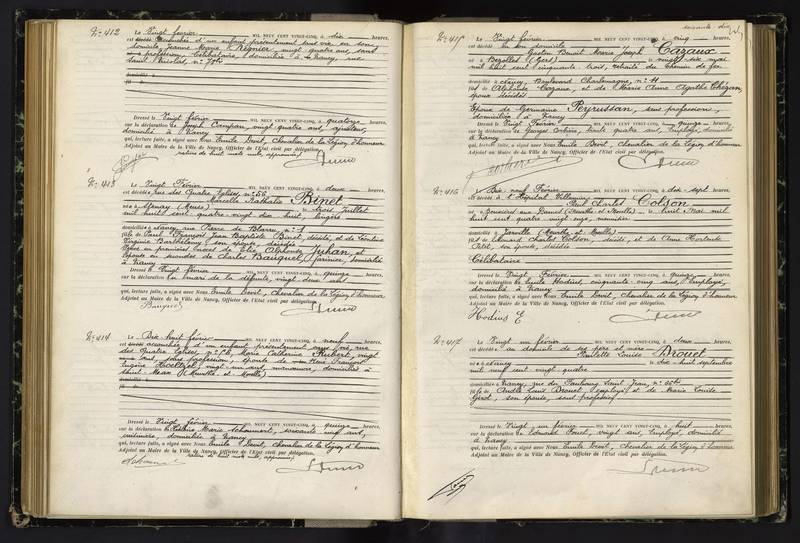 N° 412
Le Vingt février MIL NEUF CENT VINGT-CINQ, à dix heures,
est accouchée d'un enfant présentement sans vie, en son
domicile, Jeanne Marie Régnier, vingt quatre ans, sans
profession, Célibataire, domiciliée à Nancy, rue
Saint Nicolas, n°
domicilié à
fil de
Dressé le Vingt février MIL NEUF CENT VINGT-CINQ, à quatorze heures,
sur la déclaration de Joseph vingt quatre ans, ajusteur,
domicilié à Nancy
qui, lecture faite, a signé avec Nous Emile Chevalier de la Légion d'honneur
Adjoint au Maire de la Ville de Nancy, Officier de l'Etat civil par délégation.
N° 413
Le Vingt Février MIL NEUF CENT VINGT-CINQ, à deux heures,
est décédée, rue des Quatre Eglises, n° 56
Marcelle Nathalie Binet
née à Stenay (Meuse) le trois juillet
mil huit cent quatre vingt dix huit, lingère
domiciliée à Nancy, rue Pierre de Blarru, n° 1
fille de Paul François Jean Baptiste Binet, décédé, et de Léontine
Virginie Barthélemy, son épouse, décédée
Veuve en premières noces de Elie Alphonse Juhan, et
Epouse en secondes de Charles Bauquel, farinier, domicilié
à Nancy
Dressé le Vingt février MIL NEUF CENT VINGT-CINQ, à quinze heures,
sur la déclaration du mari de la défunte, vingt deux ans
qui, lecture faite, a signé avec Nous Emile Chevalier de la Légion d'honneur
Adjoint au Maire de la Ville de Nancy, Officier de l'Etat civil par délégation.
Bauquel
N° 414
Le Dix huit février MIL NEUF CENT VINGT-CINQ, à neuf heures,
est accouchée d'un enfant présentement sans vie, rue
des Quatre Eglises, n° Marie Catherine vingt
ans, sans profession, épouse de René François
Eugène vingt un ans, manoeuvre, domiciliés à
Saint Max (Meurthe et Moselle)
domicilié à
fil de
Dressé le Vingt février MIL NEUF CENT VINGT-CINQ, à quinze heures,
sur la déclaration de Marie soixante vingt ans,
domiciliée à Nancy
qui, lecture faite, a signé avec Nous Emile Chevalier de la Légion d'honneur
Adjoint au Maire de la Ville de Nancy, Officier de l'Etat civil par délégation.
soixante dix
N° 415
Le Vingt février MIL NEUF CENT VINGT-CINQ, à cinq heures,
est décédé en son domicile
Gaston Benoit Marie Joseph Cazaux
né à Bezolles (Gers) le vingt six mai
mil huit cent cinquante trois, retraité du chemin de fer
domicilié à Nancy, Boulevard Charlemagne, n° 41
fils de Alphonse Cazaux, et de Marie Anne Agathe
époux décédés
Epoux de Germaine Peyrussan, sans profession,
domiciliée à Nancy
Dressé le Vingt Février MIL NEUF CENT VINGT-CINQ, à quinze heures,
sur la déclaration de Georges trente quatre ans, Employé, domicilié
à Nancy
qui, lecture faite, a signé avec Nous Emile Chevalier de la Légion d'honneur
Adjoint au Maire de la Ville de Nancy, Officier de l'Etat civil par délégation.
N° 416
Le Dix neuf Février MIL NEUF CENT VINGT-CINQ, à dix sept heures,
est décédé à l'hôpital Villemin
Paul Charles Colson
né à (Meurthe et Moselle) le huit Mai mil
huit cent quatre vingt onze, menuisier
domicilié à Jarville (Meurthe et Moselle)
fils de Edouard Charles Colson, décédé, et de Anne Hortense
Petit, son épouse, décédée
Célibataire
Dressé le Vingt Février MIL NEUF CENT VINGT-CINQ, à quinze heures,
sur la déclaration de Emile Hodius, cinquante cinq ans, Employé,
domicilié à Nancy
qui, lecture faite, a signé avec Nous Emile Chevalier de la Légion d'honneur
Adjoint au Maire de la Ville de Nancy, Officier de l'Etat civil par délégation.
Hodius E
N° 417
Le Vingt un février MIL NEUF CENT VINGT-CINQ, à deux heures,
est décédée au domicile de ses père et mère
Paulette Louise Drouet
née à Nancy le dix huit septembre
mil neuf cent vingt quatre
domiciliée à Nancy, rue du Faubourg Saint Jean, n°
fille de André Louis Drouet, employé, et de Marie Louise
son épouse, sans profession
Dressé le Vingt un février MIL NEUF CENT VINGT-CINQ, à huit heures,
sur la déclaration de Edouard vingt ans, Employé, domicilié
à Nancy
qui, lecture faite, a signé avec Nous Emile Chevalier de la Légion d'honneur
Adjoint au Maire de la Ville de Nancy, Officier de l'Etat civil par délégation.